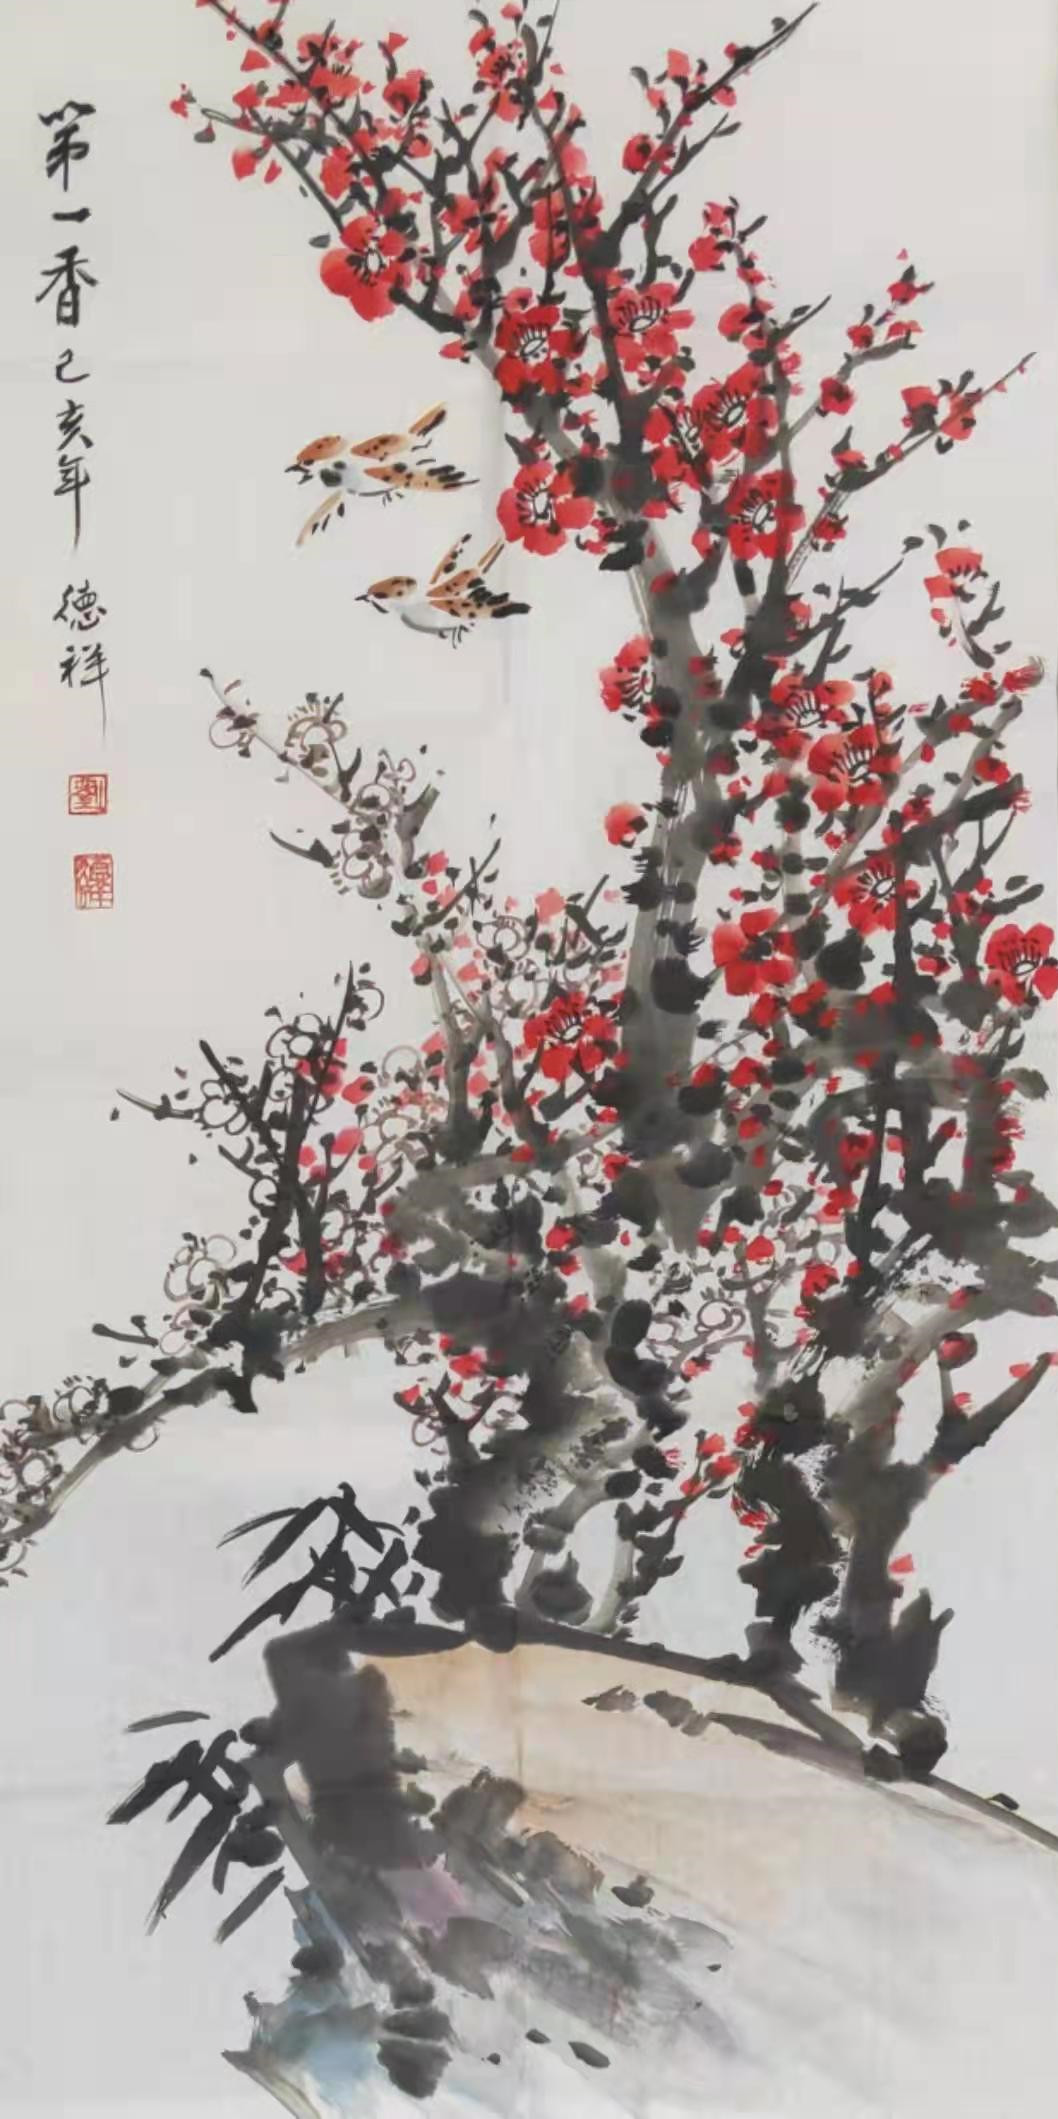 第一香己亥年 德祥
劉
德祥